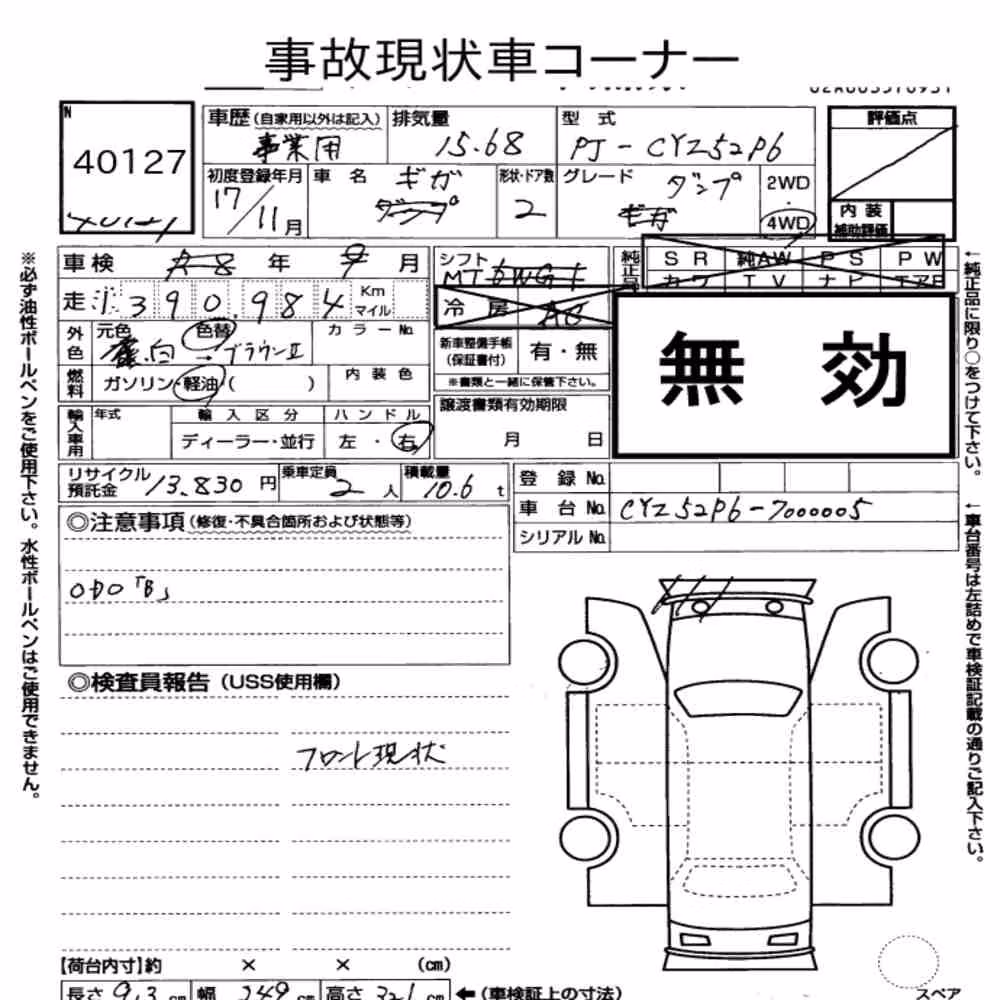 事故現状車コーナー
N
40127
車歴 (自家用以外は記入) 事業用
排気量 15.68
型式 PJ-CYZ52P6
評価点
初度登録年月 17/11月
車名 ギガ ダンプ
形状・ドア数 2
グレード ダンプ ギガ
2WD・4WD
内装補助評価
車検 年 9 月
シフト MT
純正品 SR 純AW PS PW
カワ TV ナビ エアB
走行 390,984 Km マイル
冷房 AC
無効
外色 元色 色替 白 → ブラウンⅡ
カラーNo.
新車整備手帳(保証書付) 有・無
※書類と一緒に保管下さい。
燃料 ガソリン・軽油( )
内装色
輸入車用 年式 輸入区分 ディーラー・並行
ハンドル 左・右
譲渡書類有効期限
月 日
リサイクル預託金 13,830 円
乗車定員 2 人
積載量 10.6 t
登録No.
車台No. CYZ52P6-7000005
シリアルNo.
◎注意事項(修復・不具合箇所および状態等)
ODO「B」
◎検査員報告(USS使用欄)
フロント現状
【荷台内寸】約 × × (cm)
長さ 9.3 cm 幅 249 cm 高さ 321 cm ←(車検証上の寸法)
スペア
※必ず油性ボールペンをご使用下さい。水性ボールペンはご使用できません。
←純正品に限り○をつけて下さい。
←車台番号は左詰めで車検証記載の通りご記入下さい。